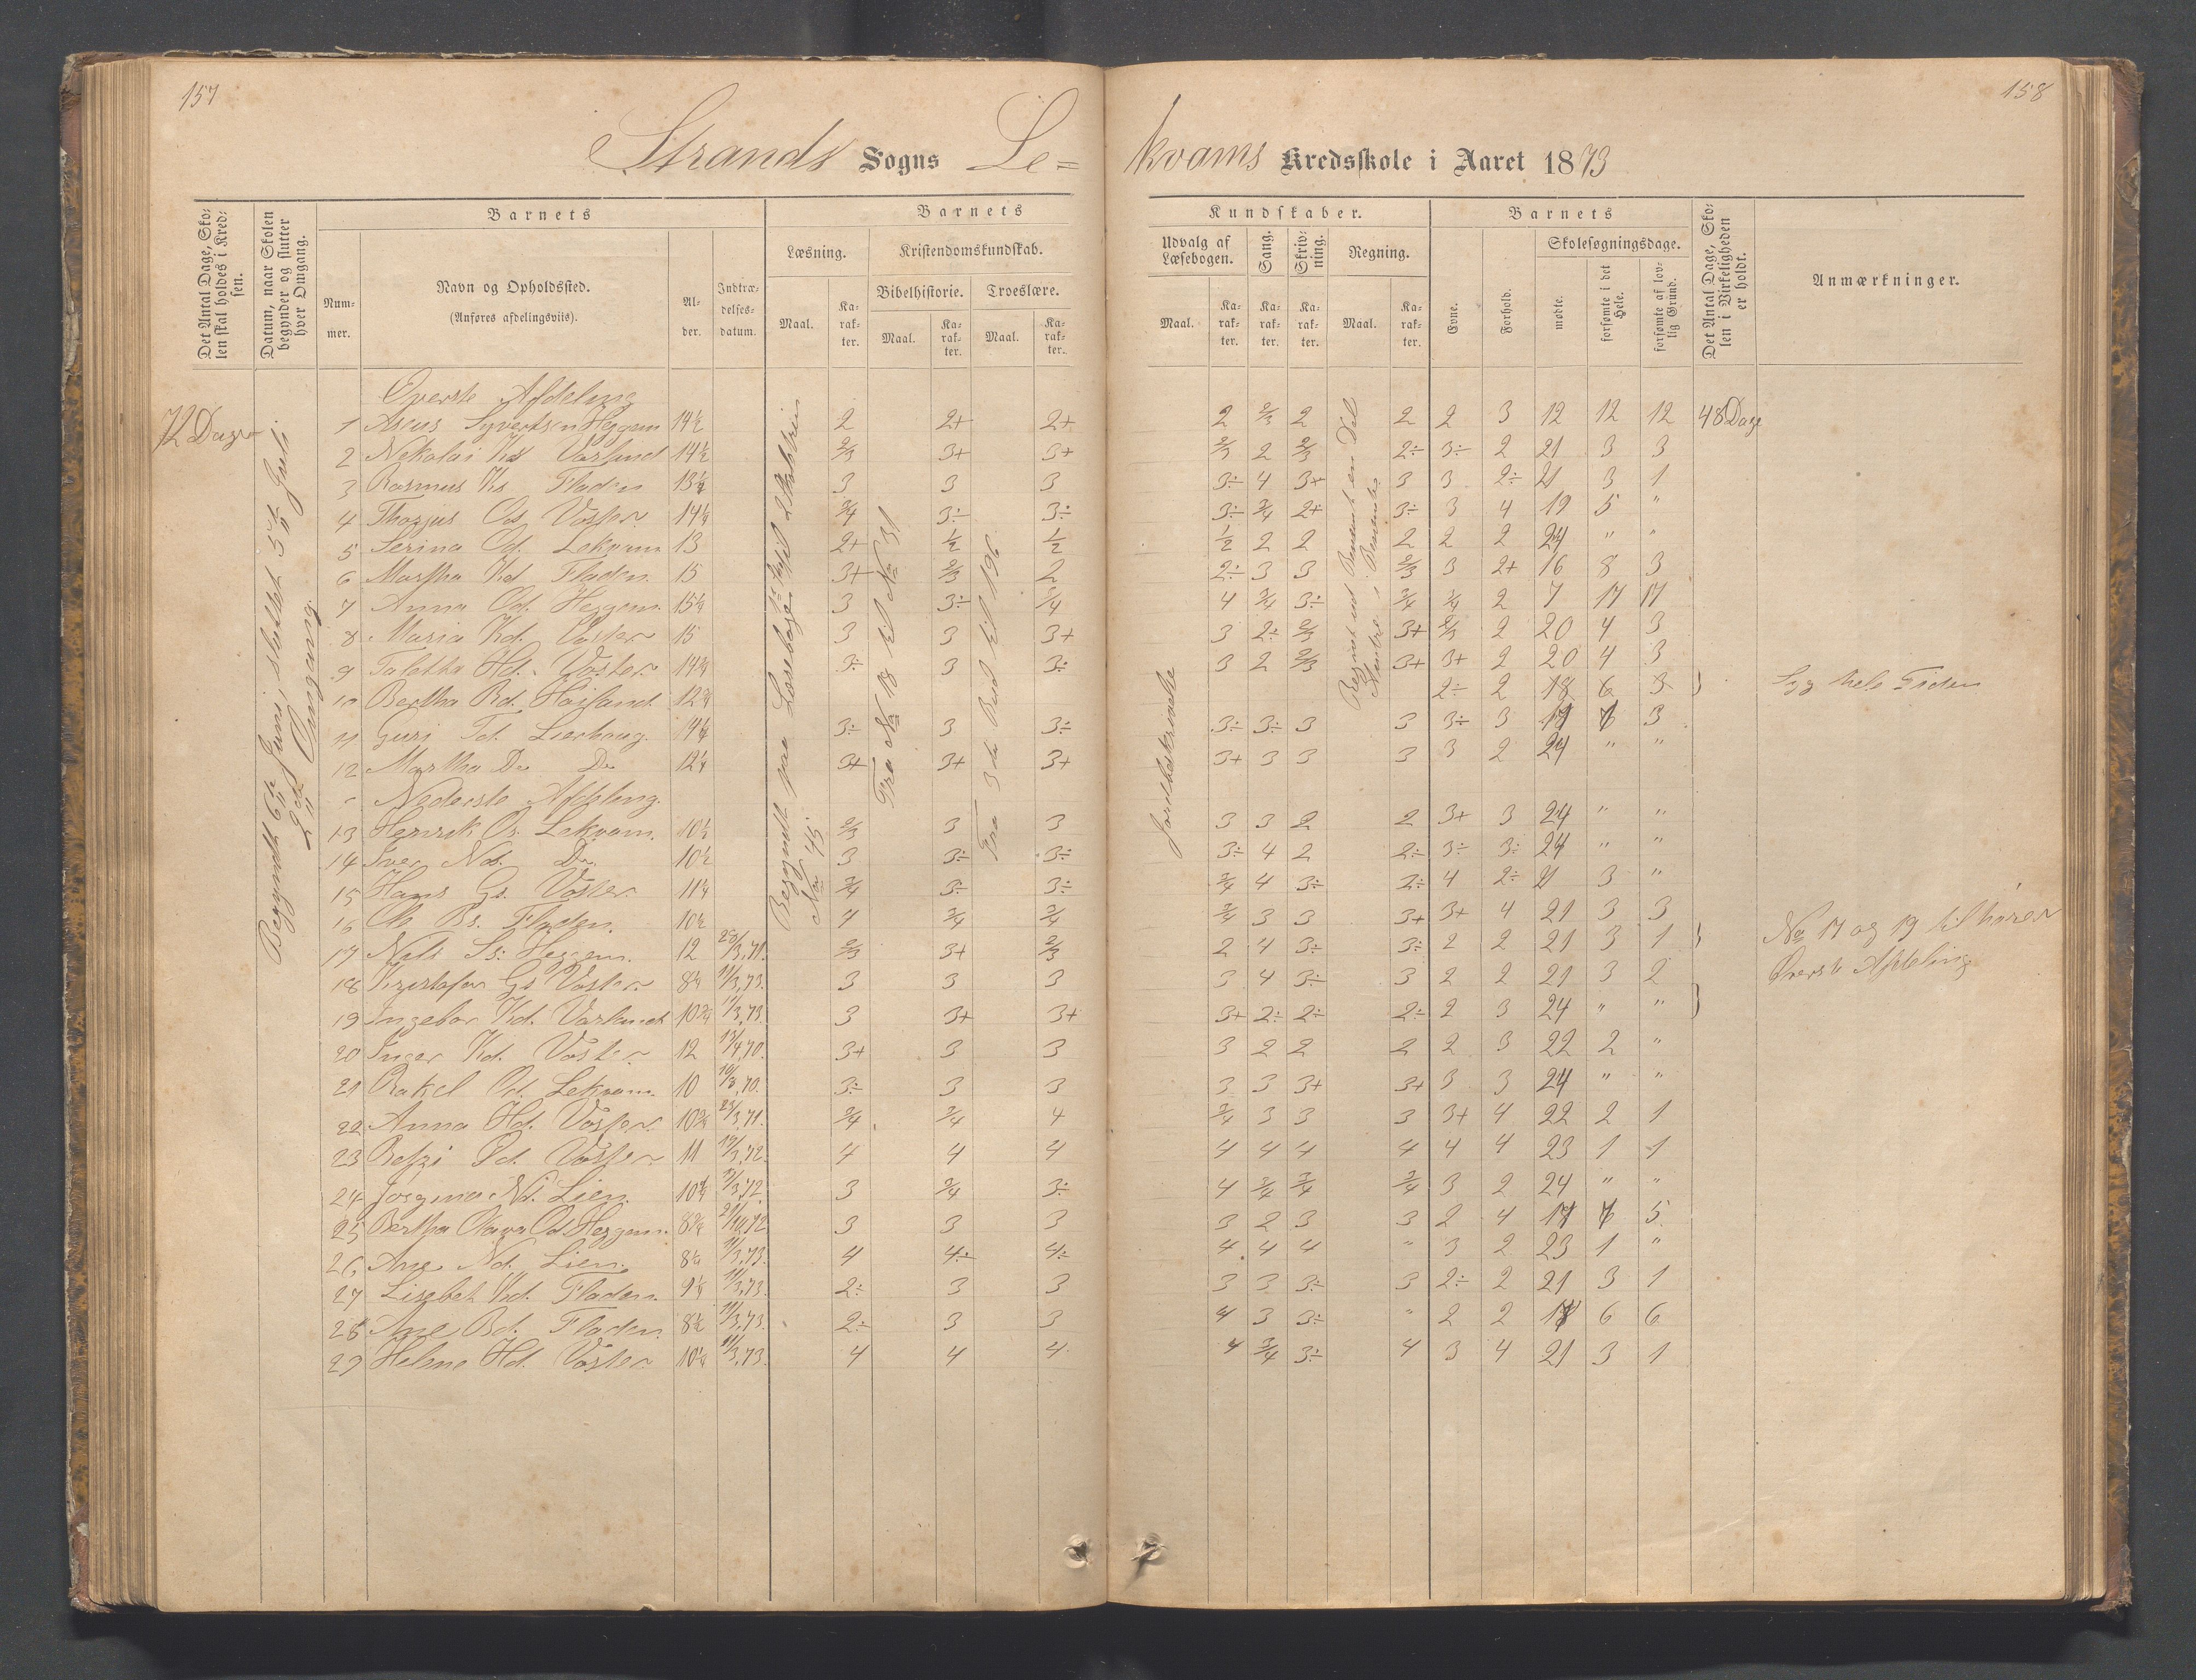 157
158
Strands Sogns Le=
kvams Kredsskole i Aaret 1873
Det Antal Dage, Skolen skal holdes i Kredsen.
Datum, naar Skolen begynder og slutter hver Omgang.
Barnets
Nummer.
Navn og Opholdssted.
(Anføres afdelingsviis).
Alder.
Indtrædelsesdatum.
Barnets
Læsning.
Kristendomskundskab.
Bibelhistorie.
Troeslære.
Maal.
Karakter.
Maal.
Karakter.
Maal.
Karakter.
Kundskaber.
Udvalg af Læsebogen.
Sang.
Skrivning.
Regning.
Maal.
Karakter.
Karakter.
Karakter.
Maal.
Karakter.
Barnets
Evne.
Forhold.
Skolesøgningsdage.
mødte.
forsømte i det Hele.
forsømte af lovlig Grund.
Det Antal Dage, Skolen i Virkeligheden er holdt.
Anmærkninger.
72 Dage
Begyndt 6te Juni, sluttet 5te Juli
2den Omgang.
Jordbeskrivelse
Øverste Afdeling
1 Syvertsen Heggem 14½ 2 2+ 2+ 2 2/3 2 2 2 3 12 12 12 48 Dage
2 Nekolai Ks Varland 14½ 2/3 3+ 3+ 2/3 2 2/3 2÷ 3÷ 2 21 3 3
3 Rasmus Ks. Fladen 13½ 3 3 3 3÷ 4 3+ 3 3 2÷ 21 3 1
4 Os Voster 14¼ 3/4 3÷ 3÷ 3÷ 3/4 2+ 3÷ 3 4 19 5 "
5 Serina Od. Lekvam 13 2+ ½ ½ ½ 2 2 2 2 2 24 " "
6 Martha Kd. Fladen. 15 3+ 2/3 2 2÷ 3 3 2/3 3 2+ 16 8 3
7 Anna Od. Heggem. 15¼ 3 3÷ 3/4 4 3/4 3÷ 3/4 3/4 2 7 17 17
8 Maria Kd. Voster 15 3 3 3+ 3 2÷ 2/3 3+ 2/3 2 20 4 3
9 Tabetha Hd. Voster 14¾ 3÷ 3 3÷ 3 2 2/3 3+ 3+ 2 20 4 3
10 Bertha Rd. Høiland 12¾ 2÷ 2 18 6 3 } Syg hele Tiden
11 Guri Td. Lierhaug. 14¼ 3÷ 3 3÷ 3÷ 3÷ 3 3 3÷ 3 17 7 3
12 Martha Do Do 12¼ 3+ 3+ 3+ 3+ 3 3 3 3 2 24 " "
Nederste Afdeling.
13 Henrik Os. Lekvam. 10½ 2/3 3 3 3 3 2 2 3+ 3 24 " "
14 Iver Ns. Do 10½ 3 3÷ 3÷ 3÷ 4 2 2÷ 3÷ 3÷ 24 " "
15 Hans Gs. Voster 11¼ 3/4 3÷ 3÷ 3/4 4 3÷ 2÷ 4 2÷ 21 3 "
16 Bs. Fladen. 10½ 4 3/4 3/4 3/4 3 3 3+ 3+ 4 21 3 3
17 Nils Ss. Heggem. 12 28/3,71. 2/3 3+ 2/3 2 4 3÷ 3÷ 2 2 21 3 1 } No 17 og 19 tilhører
18 Kristofer Gs Voster 8¼ 11/3,73. 3 3 3 3 4 3÷ 3 2 2 21 3 2 Øverste Afdeling
19 Ingebor Kd. Varland 10¾ 11/3,73. 3 3+ 3+ 3+ 2÷ 2÷ 2÷ 2 3 24 " " }
20 Inger Kd. Voster 12 13/4,70. 3+ 3 3 3 2 2 2 2 3 22 2 "
21 Rakel Od. Lekvam. 10 3÷ 3 3 3 3 3+ 3+ 3 3 24 " "
22 Anna Hd. Voster 10¾ 23/3,71. 3/4 3/4 4 3/4 3 3 3 3+ 4 22 2 1
23 Od. Voster 11 4 4 4 4 4 4 4 4 4 23 1 1
24 Jørgine Nd. Lien. 3 3/4 3÷ 4 3/4 3/4 3/4 3 2 24 " "
25 Bertha Od Heggem. 8¾ 3 3 3 3 2 3 3 2 4 17 7 5
26 Ane Nd. Lien. 8¼ 11/3,73. 4 4÷ 4÷ 4 4 4 " 3 2 23 1 "
27 Lisebet Kd. Fladen. 9¼ 11/3,73. 2÷ 3 3 3 3 3÷ 3 2÷ 2 21 3 1
28 Ane Bd. Fladen 8½ 11/3,73. 2÷ 3 3 4 3 3÷ " 2 2 18 6 6
29 Helene Hd. Voster 10¼ 11/3,73. 4 4 4 4 3/4 3÷ 4 3 4 21 3 1